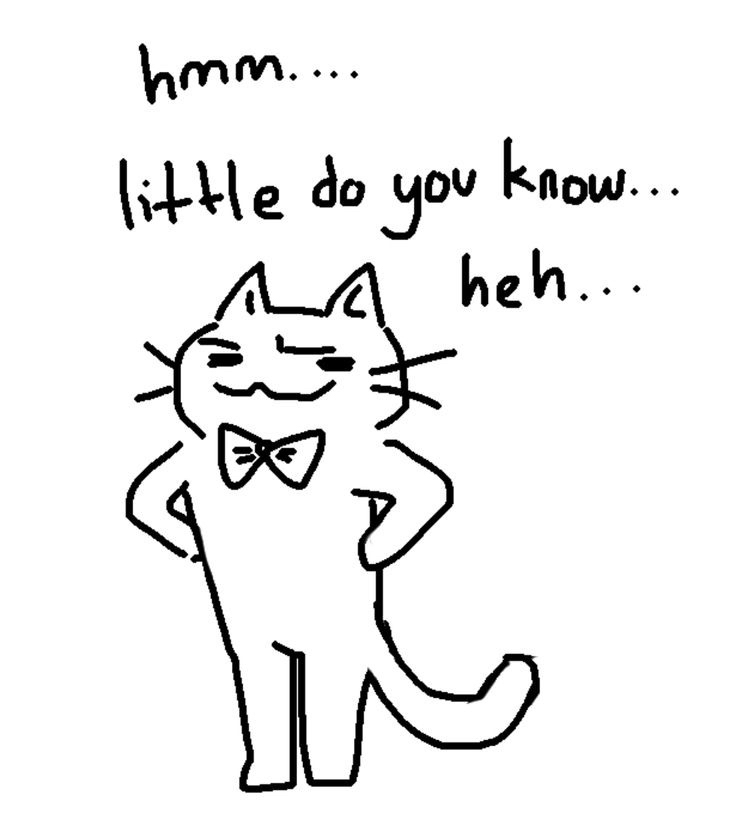 hmm....
little do you know...
heh...